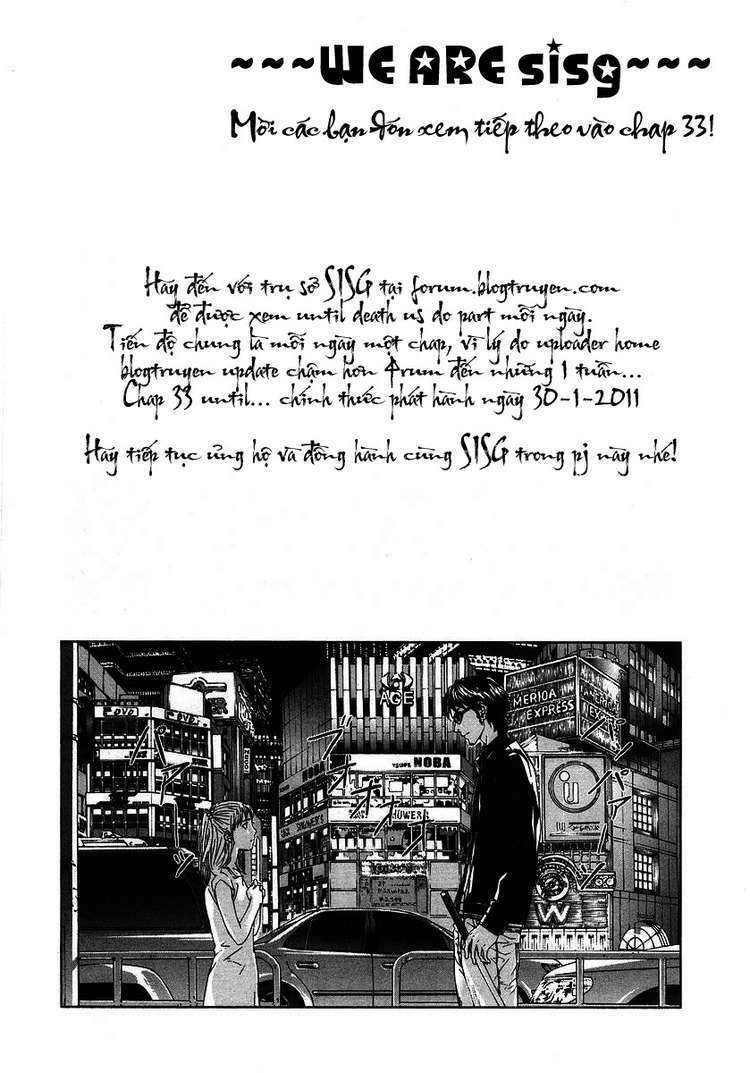 ~~~WE ARE sisg~~~
Mời các bạn đón xem tiếp theo vào chap 33!
Hãy đến với trụ sở SISG tại forum.blogtruyen.com
để được xem until death us do part mỗi ngày.
Tiến độ chung là mỗi ngày một chap, vì lý do uploader home
blogtruyen update chậm hơn 4rum đến những 1 tuần...
Chap 33 until... chính thức phát hành ngày 30-1-2011
Hãy tiếp tục ủng hộ và đồng hành cùng SISG trong pj này nhé!
AGE
MERIOA
EXPRESS
EXPRESS
DVD
DVD
NOBA
NOBA
HOWER
iu
W
ブオオオ
パパー